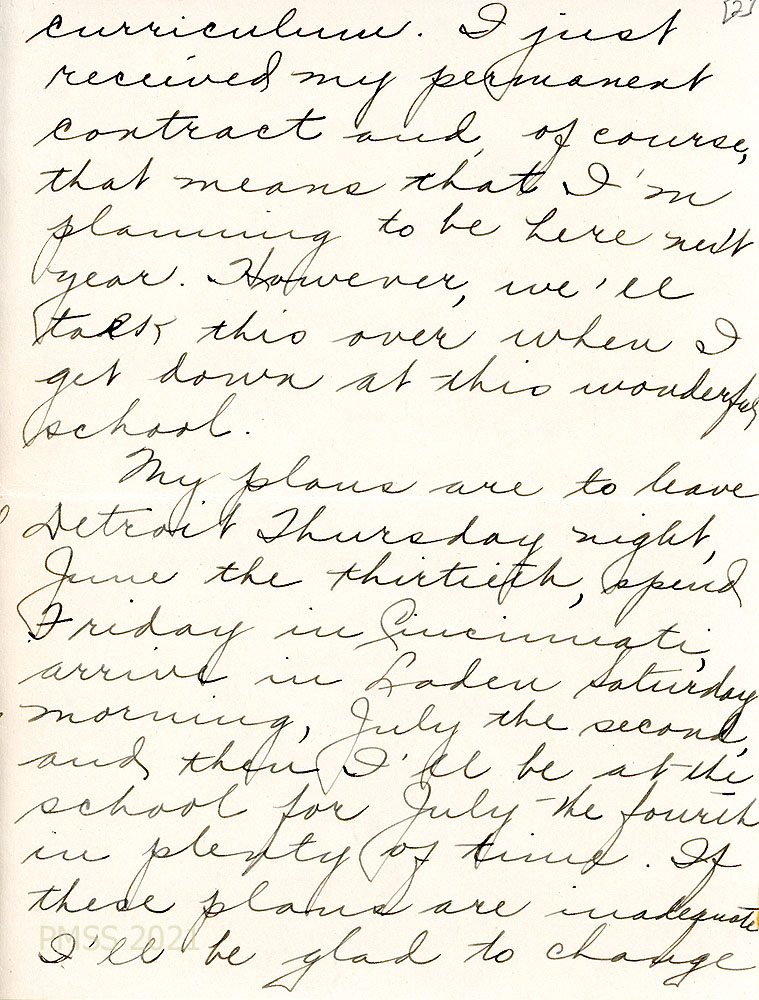 [2]
curriculum. I just
received my permanent
contract and, of course,
that means that I'm
planning to be here next
year. However, we'll
talk this over when I
get down at this wonderful
school.
My plans are to leave
Detroit Thursday night,
June the thirtieth, spend
Friday in Cincinnati,
arrive in Laden Saturday
morning, July the second,
and then I'll be at the
school for July the fourth
in plenty of time. If
these plans are inadequate
I'll be glad to change
PMSS 2021